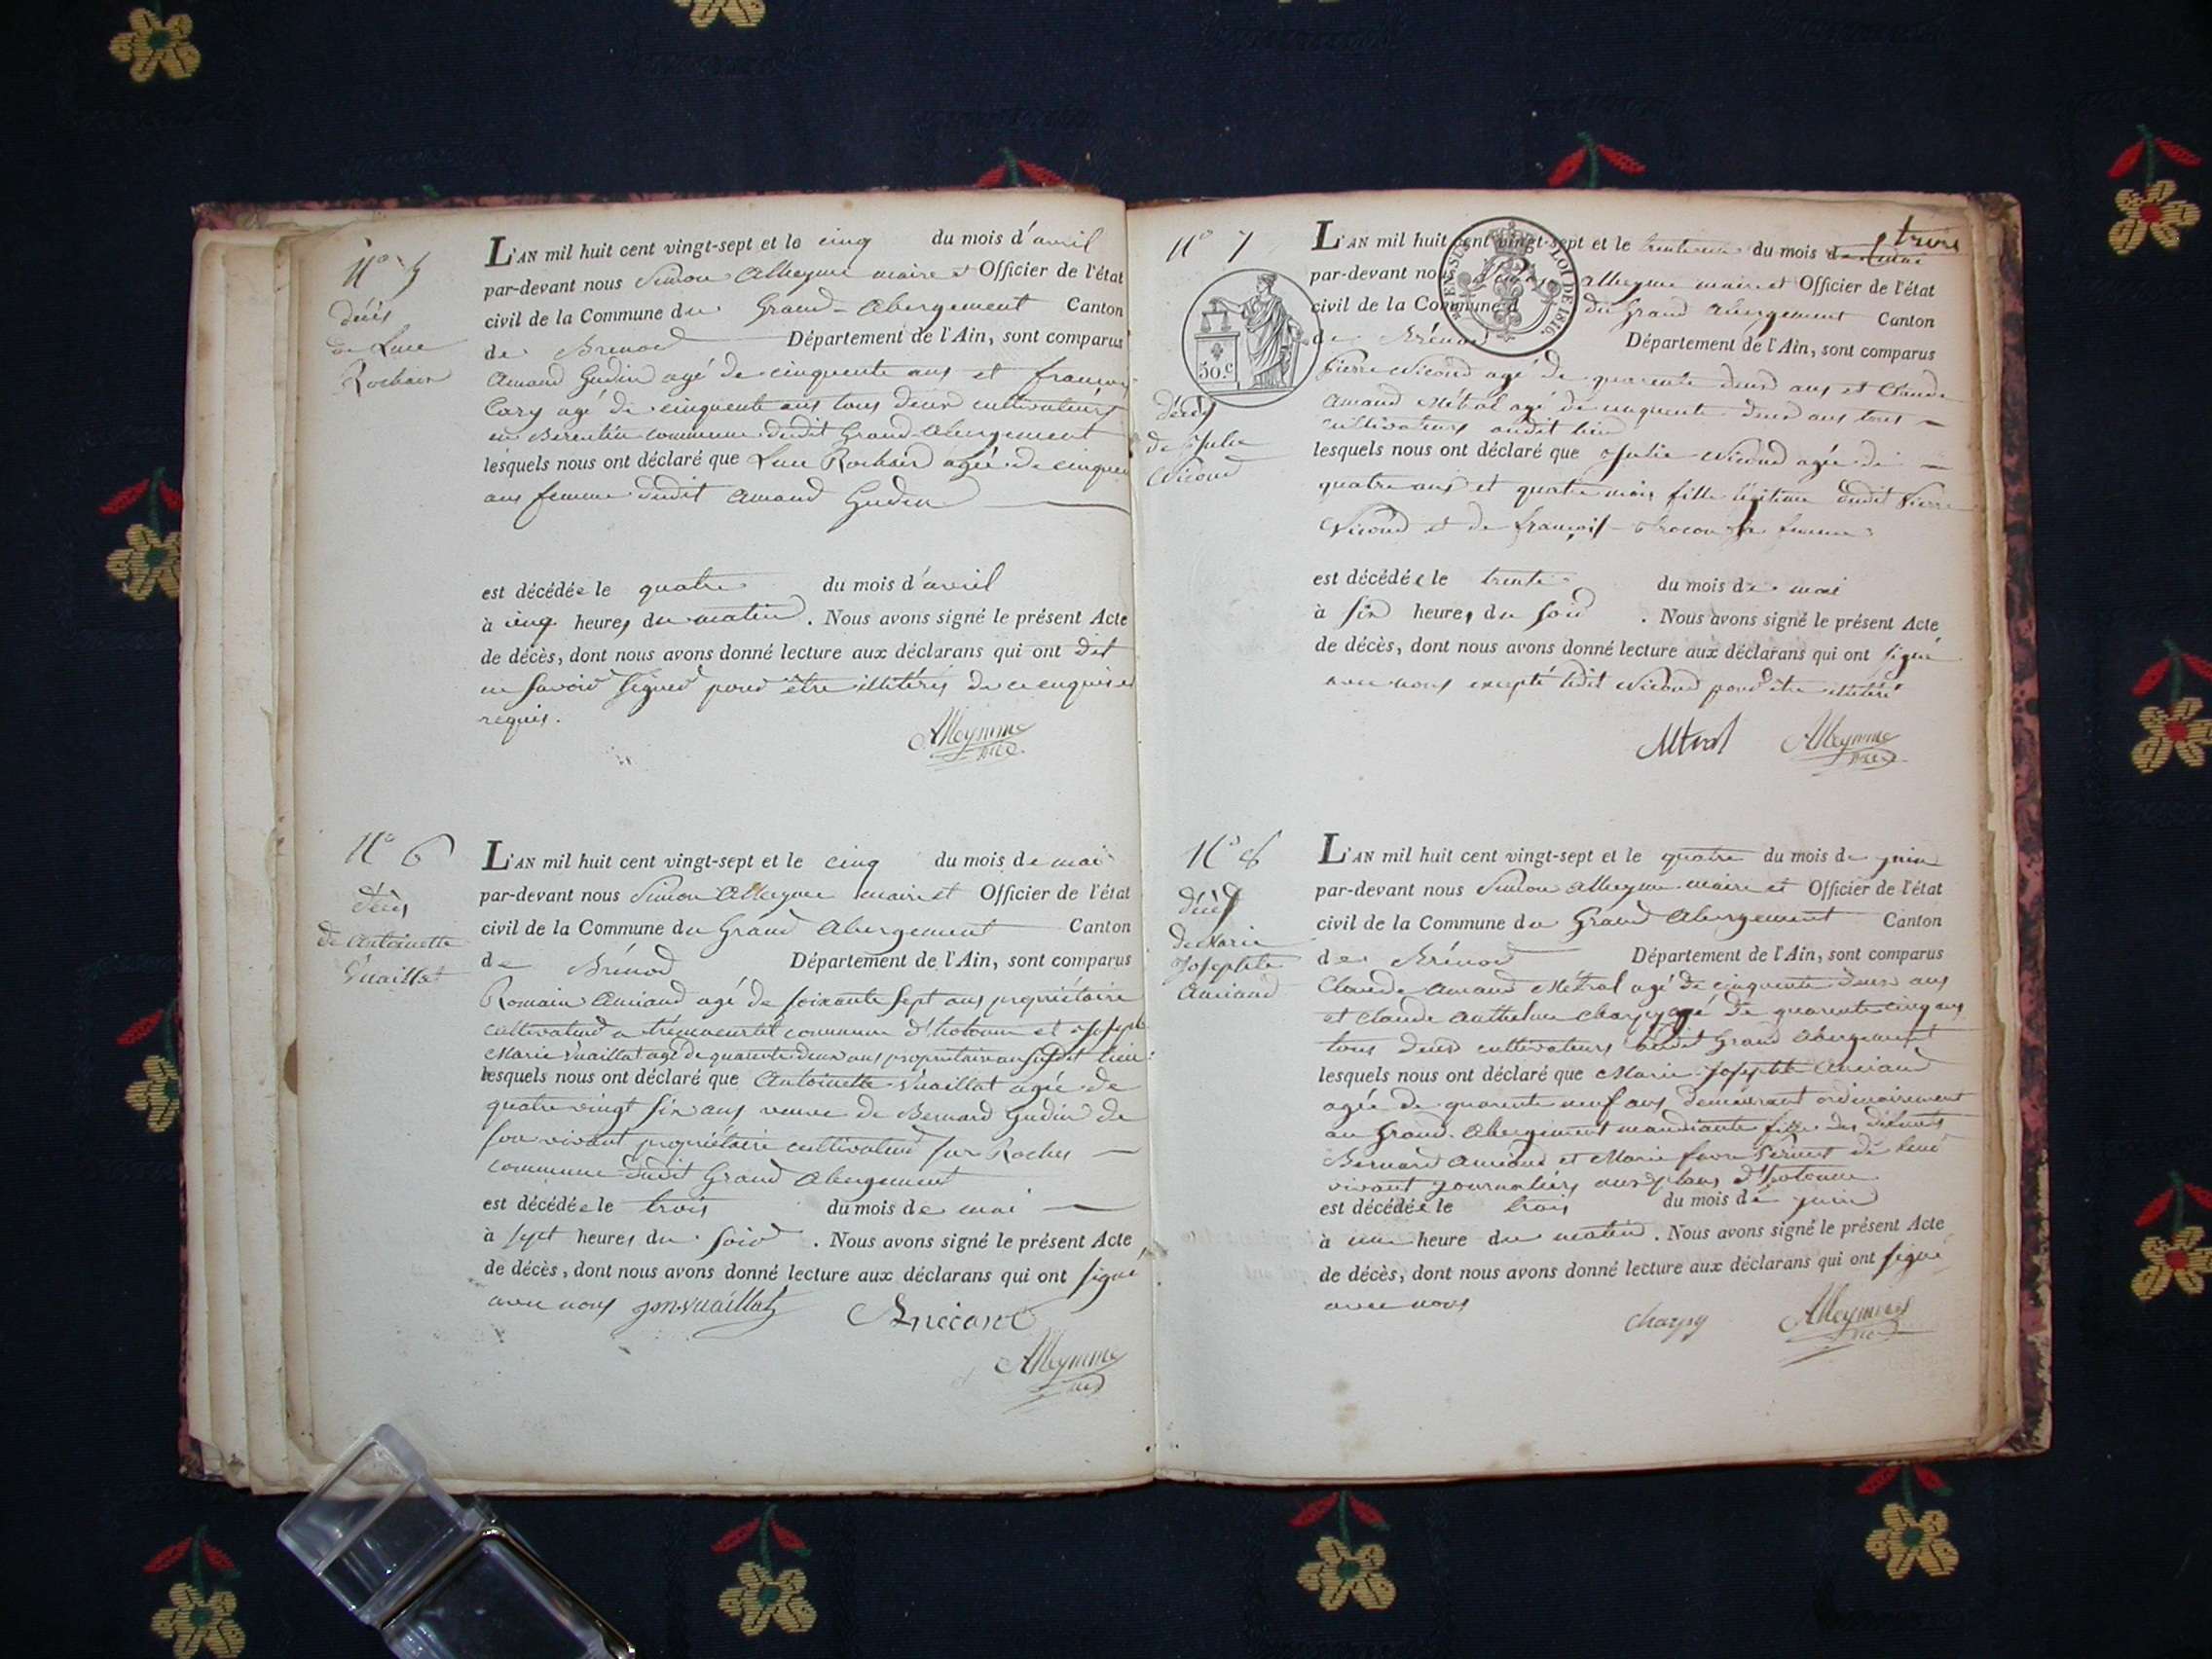 N° 5
décès
de Luce
Rochaix
L'AN mil huit cent vingt-sept et le cinq du mois d'avril
par-devant nous Simon Alleyme maire et Officier de l'état
civil de la Commune du Grand-Abergement Canton
de Brenod Département de l'Ain, sont comparus
Amand Gudin agé de cinquente ans et françois
Cary agé de cinquente ans tous deux cultivateurs
commune dudit Grand-Abergement
lesquels nous ont déclaré que Luce Rochaix agée de cinquen
ans femme dudit Amand Gudin
est décédée le quatre du mois d'avril
à cinq heures du matin. Nous avons signé le présent Acte
de décès, dont nous avons donné lecture aux déclarans qui ont dit
ne savoir signer pour être illitérés de ce enquis et
requis.
Alleymme
N° 6
décès
de Antoinette
Vuaillat
L'AN mil huit cent vingt-sept et le cinq du mois de mai
par-devant nous Simon Alleyme maire et Officier de l'état
civil de la Commune du Grand Abergement Canton
de Brénod Département de l'Ain, sont comparus
Romain Anciand agé de soixante sept ans propriétaire
cultivateur a commune d'hotonne et Joseph
Marie Vuaillat agé de quarente deux ans propriétaire au susdit lieu
lesquels nous ont déclaré que Antoinette Vuaillat agée de
quatre vingt six ans veuve de Bernard Gudin de
son vivant propriétaire cultivateur sur Roches
commune dudit Grand Abergement
est décédée le trois du mois de mai
à sept heures du soir. Nous avons signé le présent Acte
de décès, dont nous avons donné lecture aux déclarans qui ont signé
avec nous jm vuaillat Anciand
Alleymme
trois
N° 7
50.c
EN SUS
LOI DE 1816.
décès
de Julie
Nicoud
L'AN mil huit cent vingt-sept et le trente un du mois de mai
par-devant nous Alleyme maire et Officier de l'état
civil de la Commune d du Grand Abergement Canton
de Brénod Département de l'Ain, sont comparus
Pierre Nicoud agé de quarente deux ans et Claude
Amand Métral agé de cinquente deux ans tous
cultivateurs audit lieu
lesquels nous ont déclaré que Julie Nicoud agée de
quatre ans et quatre mois fille légitime dudit Pierre
Nicoud et de françoise sa femme
est décédée le trente du mois de mai
à six heures du soir. Nous avons signé le présent Acte
de décès, dont nous avons donné lecture aux déclarans qui ont signé
avec nous excepté ledit Nicoud pour être illitéré
Métral Alleymme
N° 8
décès
de Marie
Josephte
Anciand
L'AN mil huit cent vingt-sept et le quatre du mois de juin
par-devant nous Simon Alleyme maire et Officier de l'état
civil de la Commune du Grand Abergement Canton
de Brénod Département de l'Ain, sont comparus
Claude Amand Métral agé de cinquente deux ans
et Claude Anthelme Charpy agé de quarente cinq ans
tous deux cultivateurs audit Grand Abergement
lesquels nous ont déclaré que Marie Josephte Anciand
agée de quarente neuf ans demeurant ordinairement
au Grand Abergement mandiante fille des défunts
Bernard Anciand et Marie favre de leur
vivant journaliers aux plans d'hotonne
est décédée le trois du mois de juin
à une heure du matin. Nous avons signé le présent Acte
de décès, dont nous avons donné lecture aux déclarans qui ont signé
avec nous
charpy Alleymme